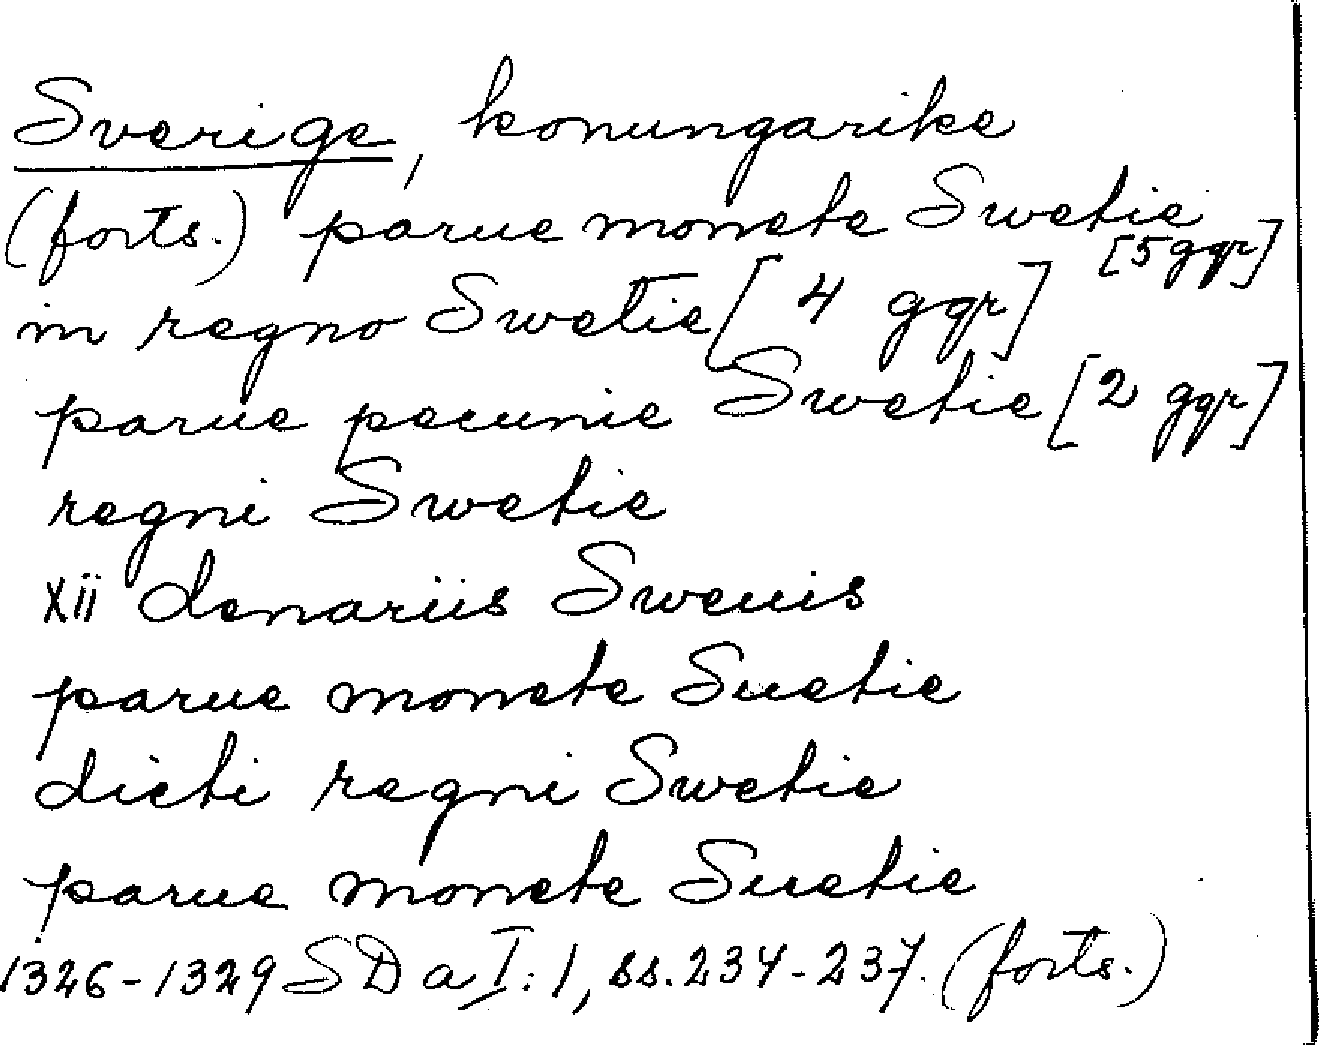 Sverige, konungarike
(forts.) parue monete Swetie
[5 ggr]
in regno Swetie [4 ggr]
parue pecunie Swetie [2 ggr]
regni Swetie
xii denariis Sweuis
parue monete Suetie
dicti regni Swetie
parue monete Suetie
1326-1329 SDa I:1, ss. 234-237. (forts.)